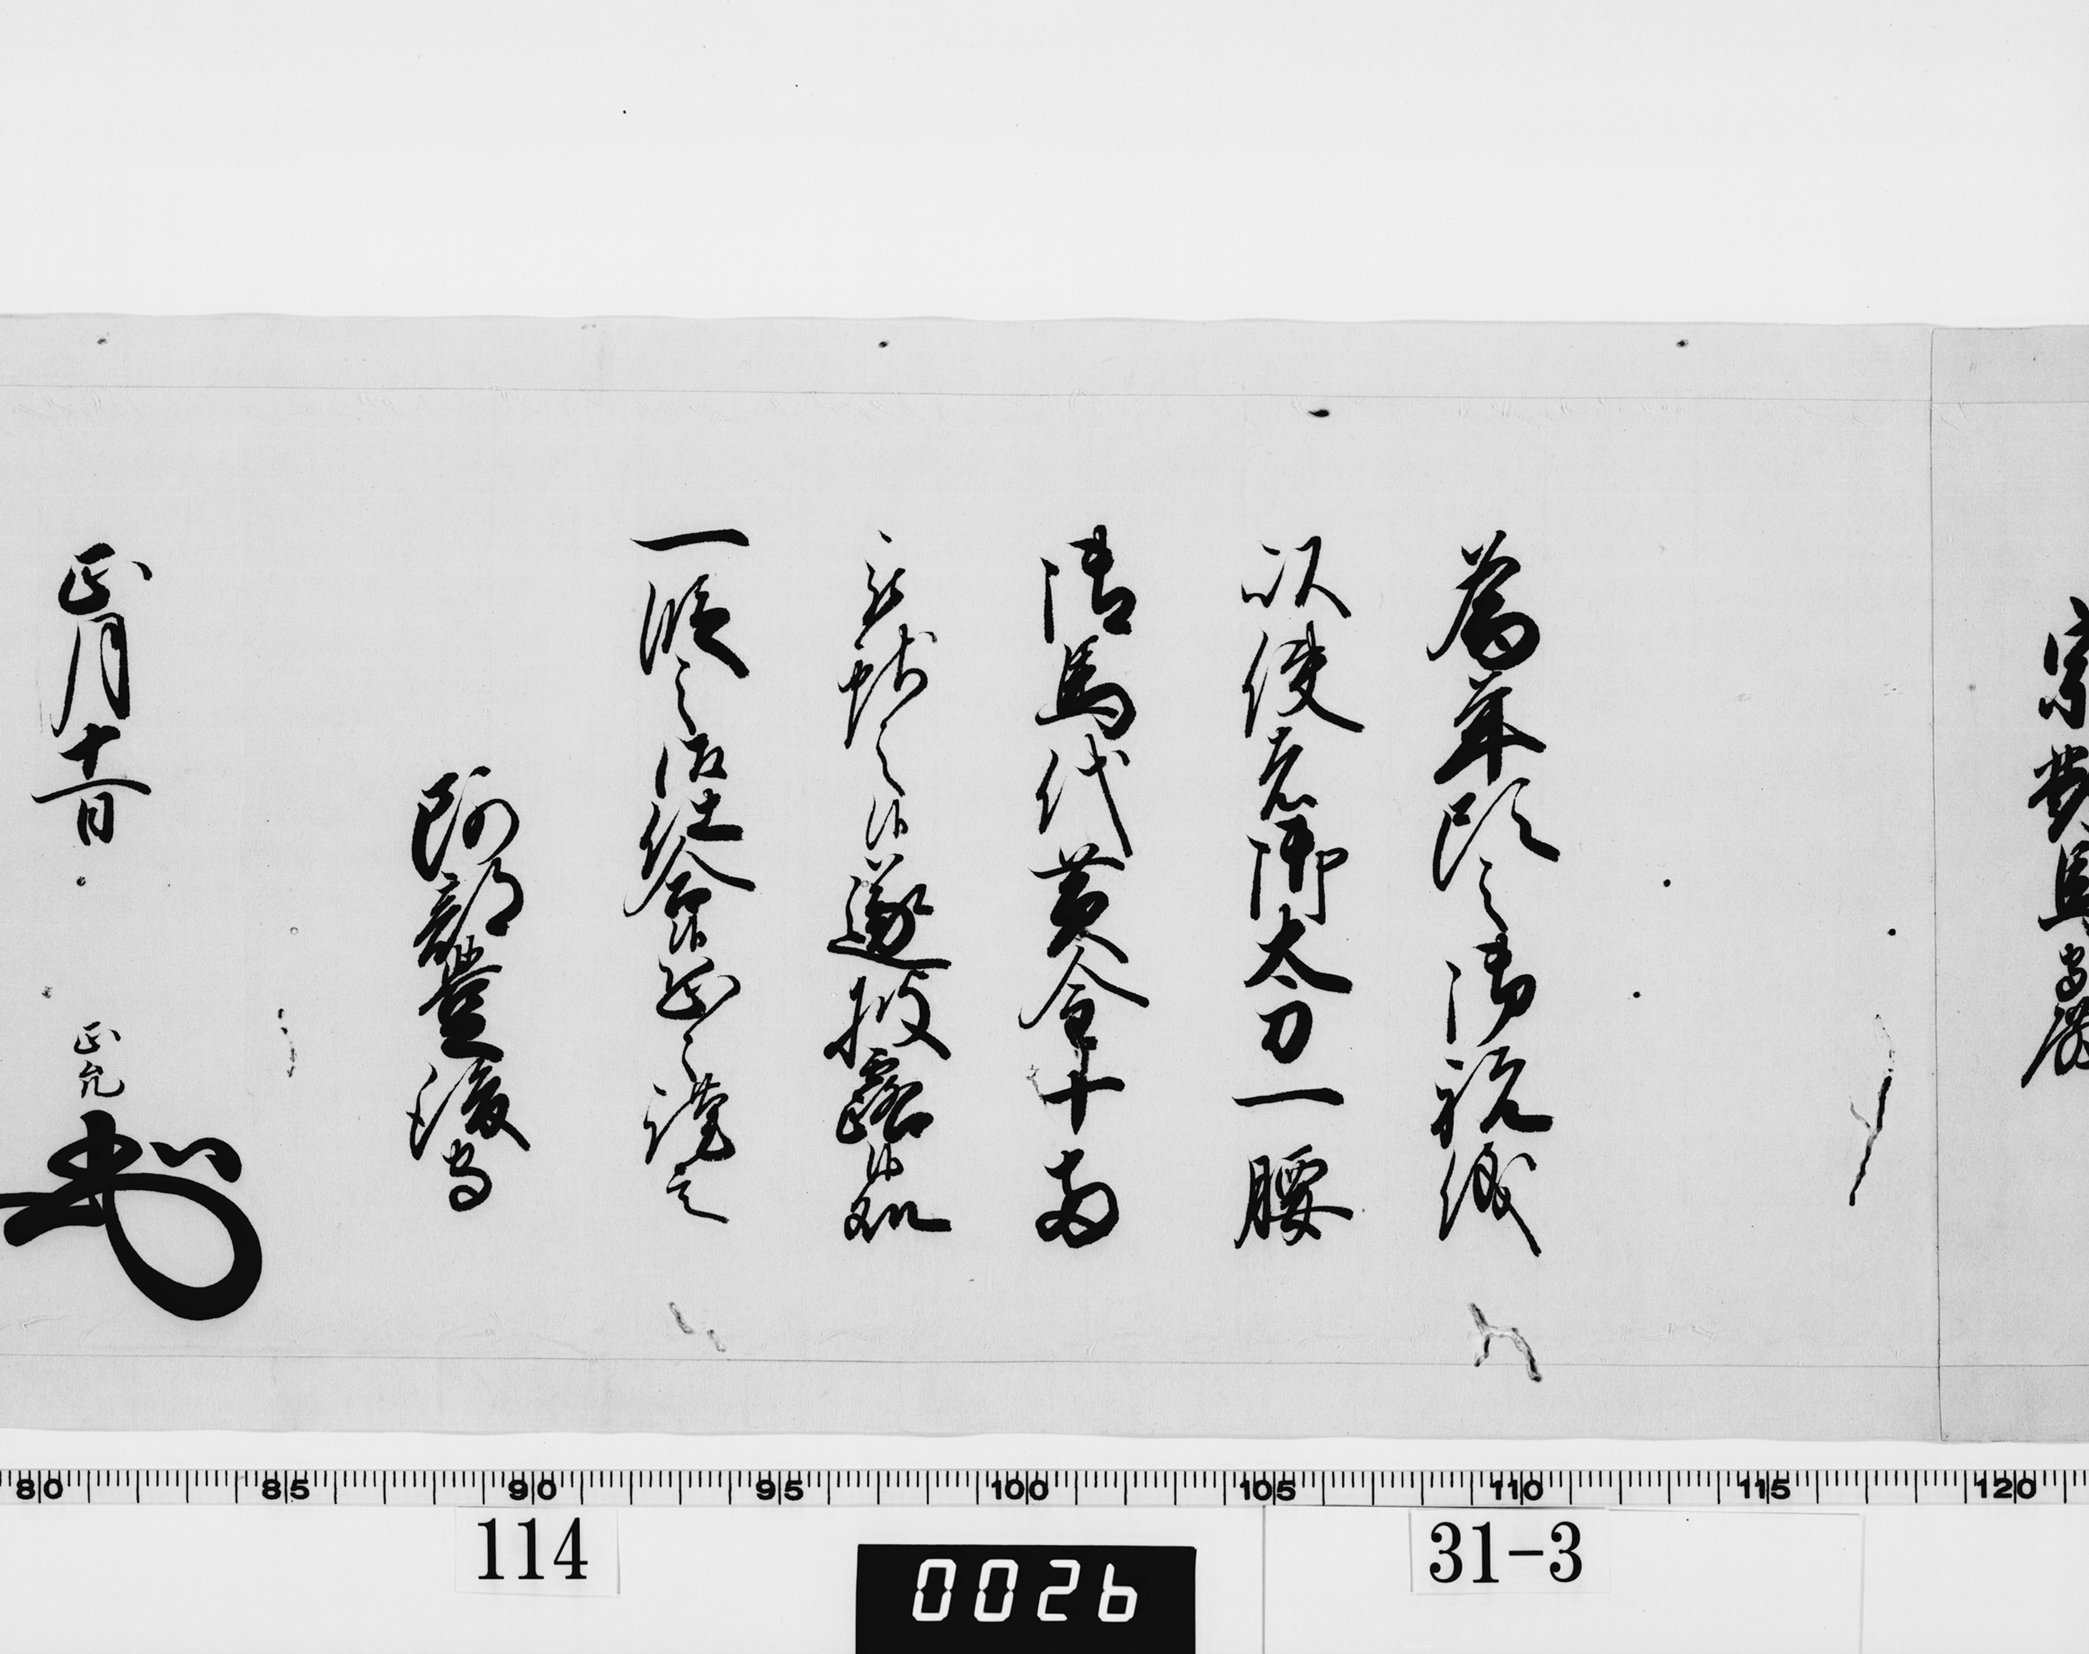 宗對馬守殿
為年頭之御祝儀
以使者御太刀一腰
御馬代黄金十両
被献之候遂披露候処
一段之御仕合候恐々謹言
阿部豊後守
正月十一日 正允
80 85 90 95 100 105 110 115 120
114 0026 31-3